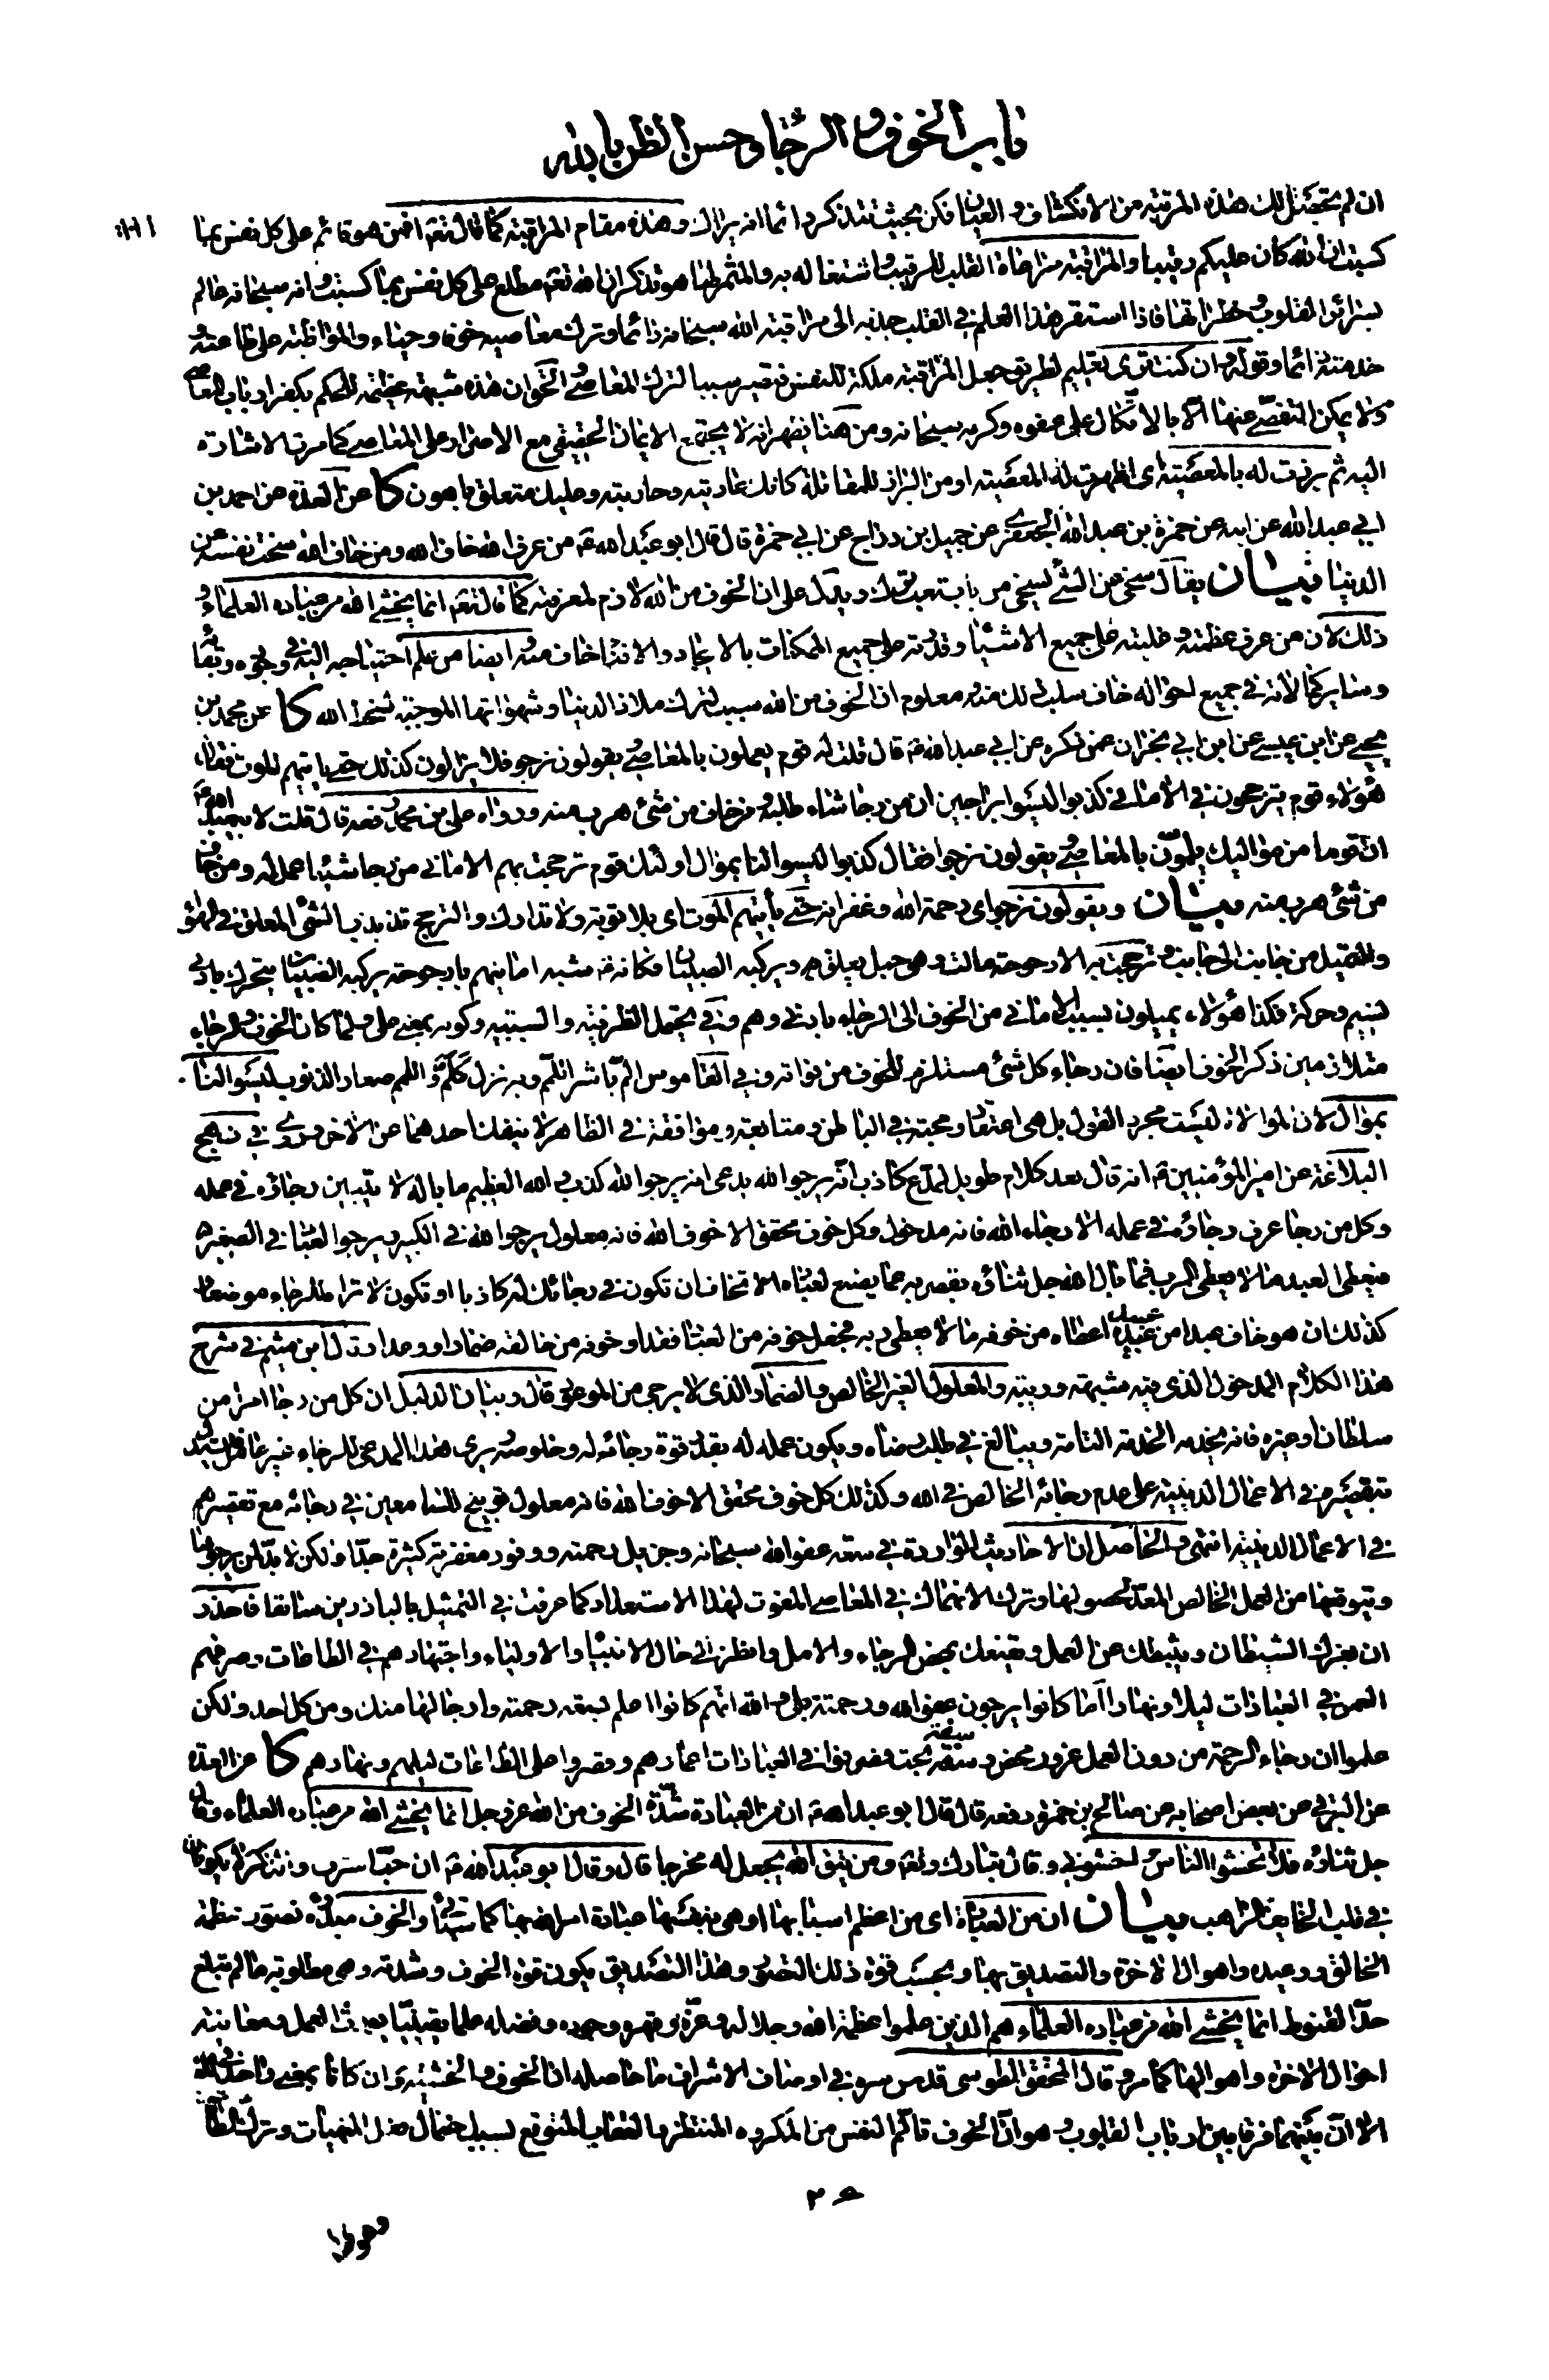 باب الخوف و الرجا و حسن الظن بالله
ان لم تحصل لك هذه المرتبة من الانكشاف و العيان فكن بحيث تتذكر دائما انه يراك و هذه مقام المراقبة كما قال تعه افمن هو قائم على كل نفس بما
كسبت ان الله كان عليكم رقيبا و المراقبة مراعاة القلب للرقيب و اشتغاله به و المثمر لها هو تذكر ان الله تعه مطلع على كل نفس بما كسبت و انه سبحانه عالم
بسرائر القلوب و خطراتها فاذا استقر هذا العلم في القلب جذبه الى مراقبة الله سبحانه دائما و ترك معاصيه خوفا و حياء و المواظبة على طاعته و
خدمته دائما و قوله و ان كنت ترى تعليم لطريق جعل المراقبة ملكة للنفس فتصير سببا لترك المعاصي و الحق ان هذه شبهة عظيمة للحكم بكفر ارباب المعاصي
و لا يمكن التفصي عنها الا بالاتكال على عفوه و كرمه سبحانه و من هنا يظهر انه لا يجتمع الايمان الحقيقي مع الاصرار على المعاصي كما مرت الاشارة
اليه ثم برزت له بالمعصية اى اظهرت له المعصية او من البراز للمقاتلة كانك عاديته و حاربته و عليك متعلق باهون كا عن العدة عن احمد بن
ابي عبد الله عن ابيه عن حمزة بن عبد الله الجعفري عن جميل بن دراج عن ابي حمزة قال قال ابو عبد الله ع من عرف الله خاف الله و من خاف الله سخت نفسه عن
الدنيا بيان يقال سخى عن الشئ يسخى من باب تعب ترك و يدل على ان الخوف من الله لازم لمعرفته كما قال تعه انما يخشى الله من عباده العلماء و
ذلك لان من عرف عظمته و غلبته على جميع الاشياء و قدرته على جميع الممكنات بالايجاد و الافناء خاف منه و ايضا من علم احتياجه اليه في وجوده و بقائه
و ساير كمالاته في جميع احواله خاف سلب ذلك منه و معلوم ان الخوف من الله سبب لترك ملاذ الدنيا و شهواتها الموجبة لسخط الله كا عن محمد بن
يحيى عن ابن عيسى عن ابن ابي نجران عمن ذكره عن ابي عبد الله ع قال قلت له قوم يعملون بالمعاصي و يقولون نرجو فلا يزالون كذلك حتى ياتيهم الموت فقال
هؤلاء قوم يترجحون في الاماني كذبوا ليسوا براجين ان من رجا شيئا طلبه و من خاف من شئ هرب منه و رواه علي بن محمد رفعه قال قلت لابي عبد الله ع
ان قوما من مواليك يلمون بالمعاصي و يقولون نرجو فقال كذبوا ليسوا لنا بموال اولئك قوم ترجحت بهم الاماني من رجا شيئا عمل له و من خاف
من شئ هرب منه بيان و يقولون نرجو اى رحمة الله و غفرانه حتى يأتيهم الموت اى بلا توبة و لا تدارك و الترجح تذبذب الشئ المعلق في الهواء
و التميل من جانب الى جانب و ترجحت به الارجوحة مالت و هي حبل يعلق و يركبه الصبيان فكانه ع شبه امانيهم بارجوحة يركبه الصبيان يتحرك بادنى
نسيم و حركة فكذا هؤلاء يميلون بسبب الاماني من الخوف الى الرجاء بادنى وهم و في يحتمل الظرفية و السببية و كونه بمعنى على و لما كان الخوف و الرجاء
متلازمين ذكر الخوف ايضا فان رجاء كل شئ مستلزم للخوف من فواته و في القاموس الم باشر اللمم و به نزل كلم و اللمم صغار الذنوب ليسوا لنا
بموال لان الموالاة ليست مجرد القول بل هي اعتقاد و محبة في الباطن و متابعة و موافقة في الظاهر لا ينفك احدهما عن الاخر و روى في نهج
البلاغة عن امير المؤمنين ع انه قال بعد كلام طويل لمدع كاذب انه يرجو الله يدعى انه يرجو الله كذب و الله العظيم ما باله لا يتبين رجاؤه في عمله
و كل من رجا عرف رجاؤه في عمله الا رجاء الله فانه مدخول و كل خوف محقق الا خوف الله فانه معلول يرجو الله في الكبير و يرجو العباد في الصغير
فيعطى العبد ما لا يعطى الرب فما بال الله جل ثناؤه يقصر به عما يصنع لعباده اتخاف ان تكون في رجائك له كاذبا او تكون لا تراه للرجاء موضعا
كذلك ان هو خاف عبدا من عبيده اعطاه من خوفه ما لا يعطى ربه فجعل خوفه من العباد نقدا و خوفه من خالقه ضمارا و وعدا و قال ابن ميثم في شرح
هذا الكلام المدخول الذى فيه شبهة و ريبة و المعلول الغير الخالص و الضمار الذى لا يرجى من الموعود قال و بيان الدليل ان كل من رجا امرا من
سلطان او غيره فانه يخدمه الخدمة التامة و يبالغ في طلب رضاه و يكون عمله له بقدر قوة رجائه له و خلوصه و يرى هذا المدعى للرجاء غير عامل فيستدل
بتقصيره في الاعمال الدينية على عدم رجائه الخالص في الله و كذلك كل خوف محقق الا خوف الله فانه معلول توبيخ للسامعين في رجائه مع تقصيرهم
في الاعمال الدينية انتهى و الحاصل ان الاحاديث الواردة في سعة عفو الله سبحانه و جزيل رحمته و وفور مغفرته كثيرة جدا و لكن لا بد لمن يرجوها
و يتوقعها من العمل الخالص المعد لحصولها و ترك الانهماك في المعاصي المفوت لهذا الاستعداد كما عرفت في التمثيل بالباذرين سابقا فاحذر
ان يغرك الشيطان و يثبطك عن العمل و يقنعك بمحض الرجاء و الامل و انظر الى حال الانبياء و الاولياء و اجتهادهم في الطاعات و صرفهم
العمر في العبادات ليلا و نهارا اما كانوا يرجون عفو الله و رحمته بلى و الله انهم كانوا اعلم بسعة رحمته و ارجا لها منك و من كل احد و لكن
علموا ان رجاء الرحمة من دون العمل غرور محض و سفه بحت فصرفوا في العبادات اعمارهم و قصروا على الطاعات ليلهم و نهارهم كا عن العدة
عن البرقي عن بعض اصحابه عن صالح بن حمزة رفعه قال قال ابو عبد الله ع ان من العبادة شدة الخوف من الله عز و جل انما يخشى الله من عباده العلماء و قال
جل ثناؤه فلا تخشوا الناس و اخشوني و قال تبارك و تعه و من يتق الله يجعل له مخرجا قال و قال ابو عبد الله ع ان حب الشرف و الذكر لا يكونان
في قلب الخائف الراهب بيان ان من العبادة اى من اعظم اسبابها او هي بنفسها عبادة امر الله بها كما سيأتي و الخوف مبدؤه تصور عظمة
الخالق و وعيده و اهوال الاخرة و التصديق بها و بحسب قوة ذلك التصور و هذا التصديق يكون قوة الخوف و شدته و هي مطلوبة ما لم تبلغ
حد القنوط انما يخشى الله من عباده العلماء هم الذين علموا عظمة الله و جلاله و عزه و قهره و جوده و فضله علما يقينيا يورث العمل و معاينة
احوال الاخرة و اهوالها كما مر و قال المحقق الطوسي قدس سره في اوصاف الاشراف ما حاصله ان الخوف و الخشية و ان كانا بمعنى واحد في اللغة
الا ان بينهما فرقا بين ارباب القلوب و هو ان الخوف تألم النفس من المكروه المنتظر و العقاب المتوقع بسبب احتمال فعل المنهيات و ترك الطاعات